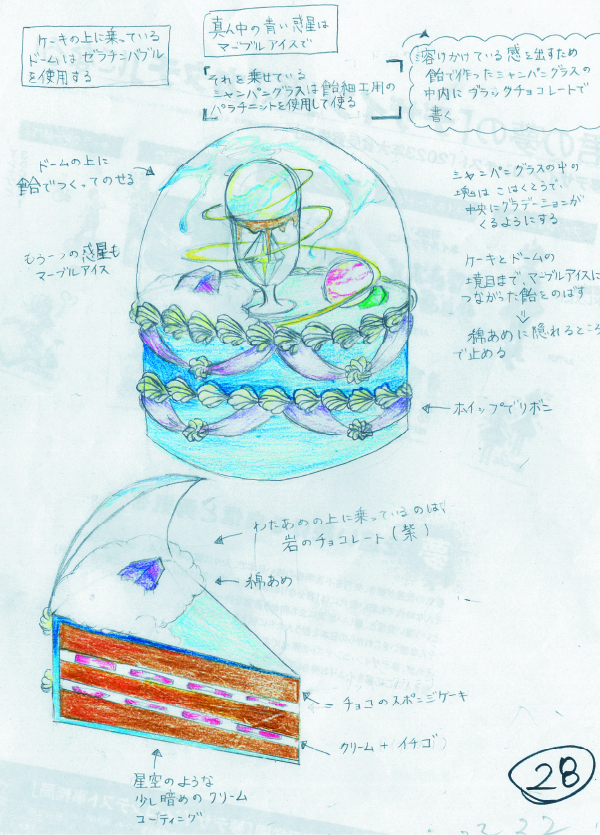 ケーキの上に乗っている
ドームはゼラチンバブル
を使用する
真ん中の青い惑星は
マーブルアイスで
それを乗せている
シャンパングラスは飴細工用の
パラチニットを使用して使る
溶けかけている感を出すため
飴で作ったシャンパングラスの
中内にブラックチョコレートで
書く
ドームの上に
飴でつくってのせる
もう一つの惑星も
マーブルアイス
シャンパングラスの中の
塊はこはくとうで、
中央にグラデーションが
くるようにする
ケーキとドームの
境目まで、マーブルアイスに
つながった飴をのばす
綿あめに隠れるところ
で止める
ホイップでリボン
わたあめの上に乗っているのは、
岩のチョコレート(紫)
綿あめ
チョコのスポンジケーキ
クリーム+イチゴ
星空のような
少し暗めのクリーム
コーティング
28